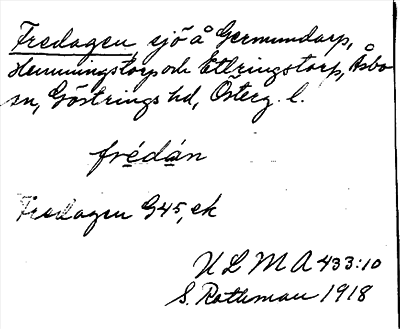 Fredagen, sjö å Germundarp,
Hemmingstorp och Ettringstorp, Åsbo
sn, Göstrings hd, Österg. l.
frédán
Fredagen G45, ek
ULMA 433:10
S. Rathman 1918